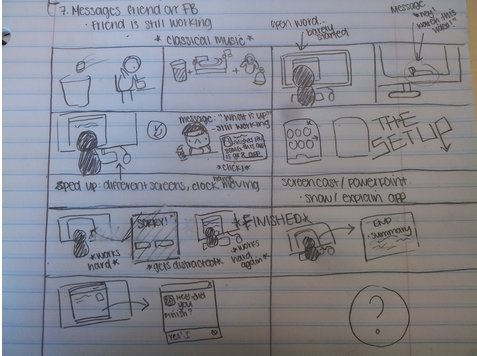 7. Messages friend on FB
· Friend is still working
* classical music *
open word...
barely
started
Message
"Hey!
watch this
video!"
message: "What is up?"
-still working
*click*
THE
SETUP
sped up: different screens, clock moving
screencast / powerpoint
· show / explain app
*works
hard*
*gets distracted*
*FINISHED*
*works
hard
again*
END
summary
Hey! did
you
finish?
Yes! :)
?